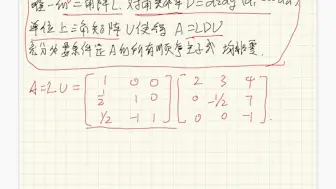 唯一的单位下三角矩阵L.对角矩阵D=diag(d₁,
单位上三角矩阵U使得 A=LDU
充分必要条件是A的所有顺序主子式均非零.
A=LU= [1 0 0] [2 3 4]
[1/2 1 0] [0 -1/2 7]
[1/2 -1 1] [0 0 -1].